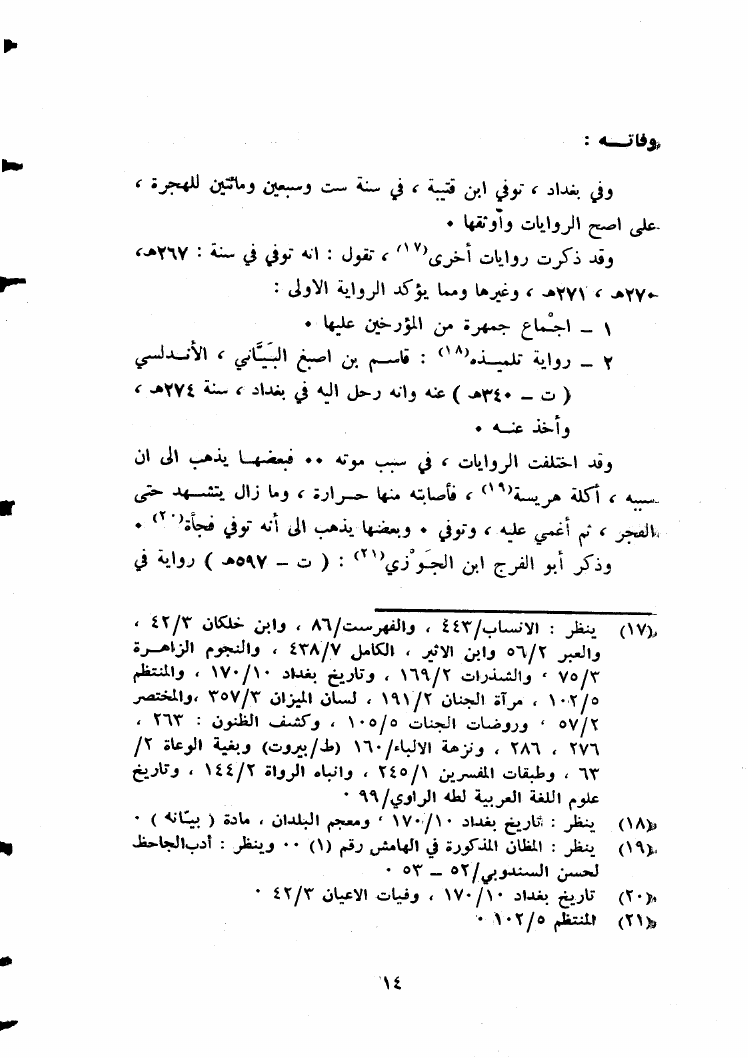 وفاتــه :
وفي بغداد ، توفي ابن قتيبة ، في سنة ست وسبعين ومائتين للهجرة ،
على اصح الروايات وأوثقها ٠
وقد ذكرت روايات أخرى(١٧) ، تقول : انه توفي في سنة : ٢٦٧هـ،
٢٧٠هـ ، ٢٧١هـ ، وغيرها ومما يؤكد الرواية الاولى :
١ – اجماع جمهرة من المؤرخين عليها ٠
٢ – رواية تلميــذه(١٨) : قاســم بن اصبغ البَيَّاني ، الأنــدلسي
( ت – ٣٤٠هـ ) عنه وانه رحل اليه في بغداد ، سنة ٢٧٤هـ ،
وأخذ عنــه ٠
وقد اختلفت الروايات ، في سبب موته ٠٠ فبعضهــا يذهب الى ان
سببه ، أكلة هريسة(١٩) ، فأصابته منها حــرارة ، وما زال يتشــهد حتى
الفجر ، ثم أغمي عليه ، وتوفي ٠ وبعضها يذهب الى أنه توفي فجأة(٢٠) ٠
وذكر أبو الفرج ابن الجَوْزي(٢١) : ( ت – ٥٩٧هـ ) رواية في
(١٧) ينظر : الانساب/٤٤٣ ، والفهرست/٨٦ ، وابن خلكان ٤٢/٣ ،
والعبر ٥٦/٢ وابن الاثير ، الكامل ٤٣٨/٧ ، والنجوم الزاهــرة
٧٥/٣ ، والشذرات ١٦٩/٢ ، وتاريخ بغداد ١٧٠/١٠ ، والمنتظم
١٠٢/٥ ، مرآة الجنان ١٩١/٢ ، لسان الميزان ٣٥٧/٣ ،والمختصر
٥٧/٢ ، وروضات الجنات ١٠٥/٥ ، وكشف الظنون : ٢٦٣ ،
٢٧٦ ، ٢٨٦ ، ونزهة الالباء/١٦٠ (ط/بيروت) وبغية الوعاة ٢/
٦٣ ، وطبقات المفسرين ٢٤٥/١ ، وانباه الرواة ١٤٤/٢ ، وتاريخ
علوم اللغة العربية لطه الراوي/٩٩ ٠
(١٨) ينظر : تاريخ بغداد ١٧٠/١٠ ، ومعجم البلدان ، مادة ( بيّانه ) ٠
(١٩) ينظر : المظان المذكورة في الهامش رقم (١) ٠٠ وينظر : أدب‌الجاحظ
لحسن السندوبي/٥٢ – ٥٣ ٠
(٢٠) تاريخ بغداد ١٧٠/١٠ ، وفيات الاعيان ٤٢/٣ ٠
(٢١) المنتظم ١٠٢/٥ ٠
١٤